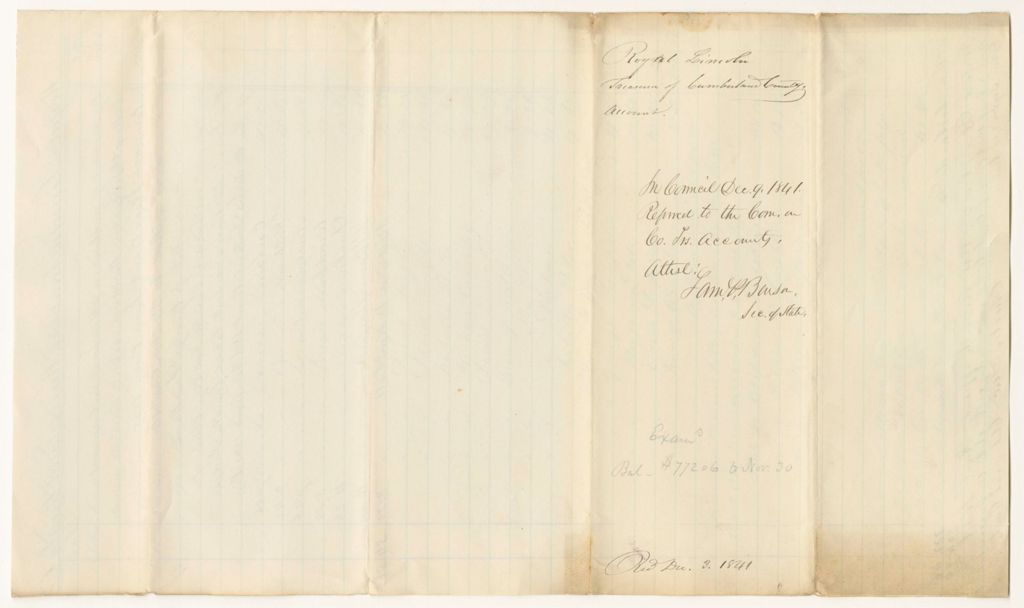 Royal Lincoln
Treasurer of Cumberland County,
Account.
In Council Dec. 9. 1841.
Referred to the Com. on
Co. Trs. Accounts.
Attest:
Saml. P. Benson,
Sec. of State.
Examd
Bal - $772 06 to Nov. 30
Recd Dec. 3. 1841